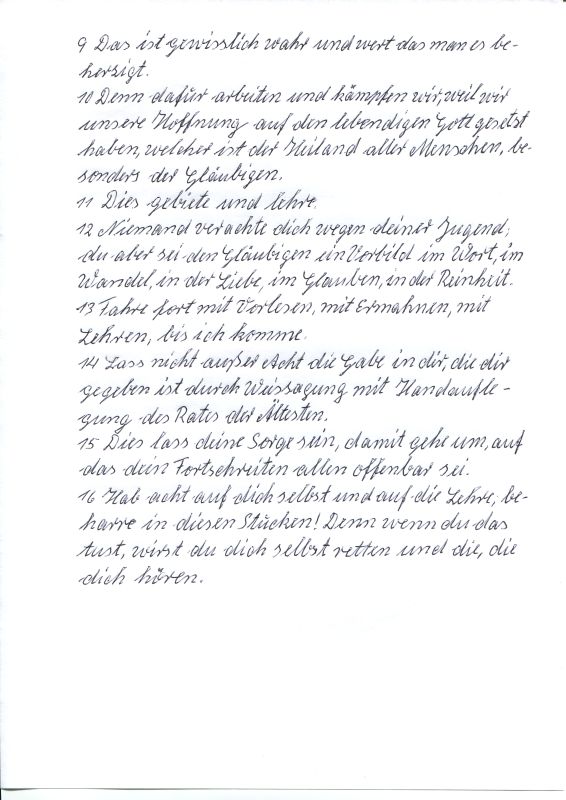 9 Das ist gewisslich wahr und wert das man es be-
herzigt.
10 Denn dafür arbeiten und kämpfen wir, weil wir
unsere Hoffnung auf den lebendigen Gott gesetzt
haben, welcher ist der Heiland aller Menschen, be-
sonders der Gläubigen.
11 Dies gebiete und lehre.
12 Niemand verachte dich wegen deiner Jugend;
du aber sei den Gläubigen ein Vorbild im Wort, im
Wandel, in der Liebe, im Glauben, in der Reinheit.
13 Fahre fort mit Vorlesen, mit Ermahnen, mit
Lehren, bis ich komme.
14 Lass nicht außer Acht die Gabe in dir, die dir
gegeben ist durch Weissagung mit Handaufle-
gung des Rates der Ältesten.
15 Dies lass deine Sorge sein, damit gehe um, auf
das dein Fortschreiten allen offenbar sei.
16 Hab acht auf dich selbst und auf die Lehre; be-
harre in diesen Stücken! Denn wenn du das
tust, wirst du dich selbst retten und die, die
dich hören.